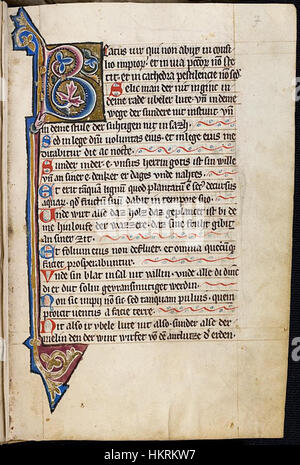 Beatus uir qui non abijt in consi
lio impior, et in uia pccor non ste
tit: et in cathedra pestilencie nō sed
Selic man der nit inginc in
deme rade ubeler lute vn̄ in deme
wege der sunder nit instuit vn̄
in deme stule der suhtigen nit in sazh.
Sed in lege dn̄i uoluntas eius: et in lege eius me
ditabitur die ac nocte.
Sunder in der e unsirs herrin gotis ist sin wille
vn̄ an siner e denker er dages vnde nahtes.
Et erit tāquā lignū quod plantatū ē sec decursus
aquar, qd fructū suū dabit in tempore suo.
Unde wirt alse daz holz daz geplanzet ist bi de
me hinloufe der wazzere, daz sine fruht gibit
an siner zit.
Et folium eius non defluet: et omnia quecūqz
faciet prosperabuntur.
Unde sin blat insal nit vallin, vnde alle di dinc
di er dut solin gevramsmutiget werdin.
Non sic impij nō sic: sed tanquam puluis, quem
proicit uentus a facie terre.
Nit also ir vbele lute nit also, sunder alse der
melm den der wint wirfet vō deme antlutze d'erden.
alamy
Image ID: HKRKW7
www.alamy.com